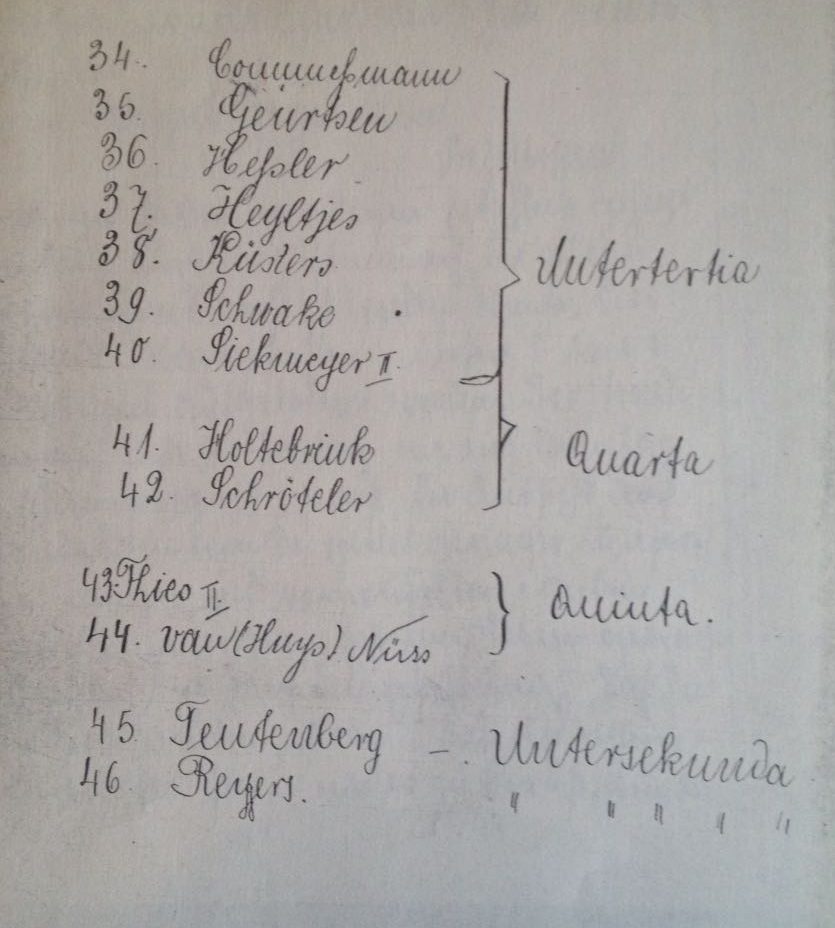 34.
35. Geurtsen
36. Heßler
37. Heyltjes
38. Küsters
39. Schwake
40. Siekmeyer II.
Untertertia
41. Holtebrink
42. Schröteler
Quarta
43 Thies II.
44. van (Huys)
Quinta.
45 Teutenberg -. Untersekunda
46. " " " " "